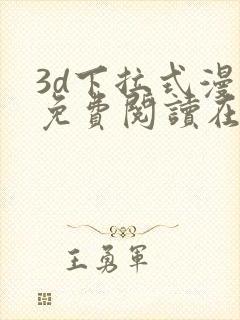 3d下拉式漫
免費閱讀在
王勇軍